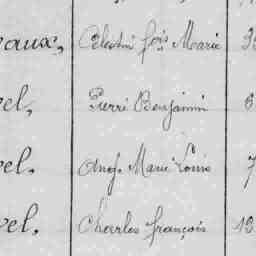 eaux, Célestin fois Marie 3
vel, Pierre Benjamin 6
vel, Ange Marie Louis 7
vel, Charles françois 13